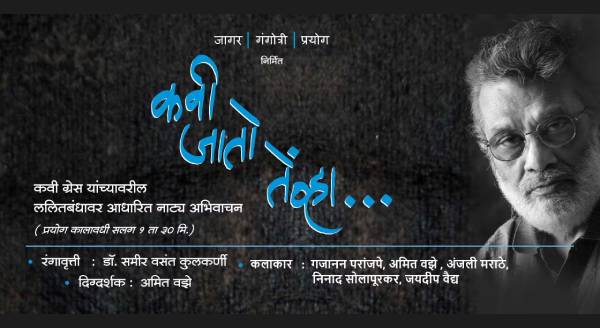 जागर | गंगोत्री | प्रयोग
निर्मित
कवी
जातो
तेंव्हा...
कवी ग्रेस यांच्यावरील
ललितबंधावर आधारित नाट्य अभिवाचन
( प्रयोग कालावधी सलग १ ता ३० मि.)
• रंगावृत्ती : डॉ. समीर वसंत कुलकर्णी
• दिग्दर्शक : अमित वझे
• कलाकार : गजानन परांजपे, अमित वझे , अंजली मराठे,
निनाद सोलापूरकर, जयदीप वैद्य